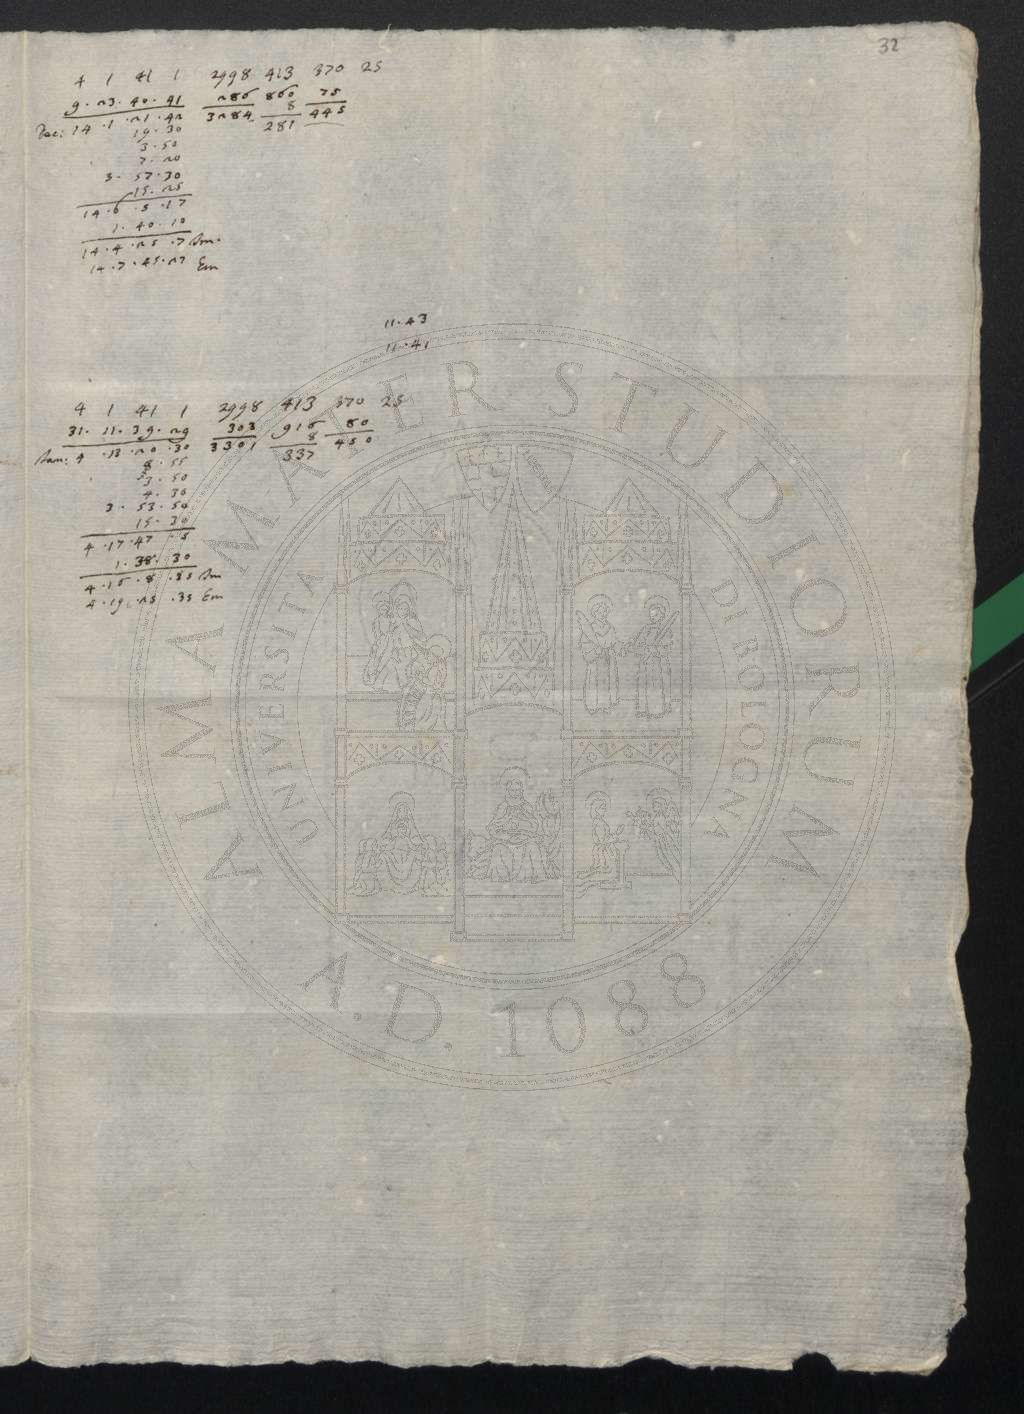 32
4 1 41 1 2998 413 370 25
9. 23. 40. 41 286 860 75
Dec: 14. 1. 21. 42 3284 8 445
19. 30 281
3. 50
7. 20
3. 57. 30
15. 25
14. 6. 5. 17
1. 40. 10
14. 4. 25. 7 Im.
14. 7. 45. 27 Em
11. 43
11. 41
4 1 41 1 2998 413 370 25
31. 11. 39. 29 303 916 80
Jan: 4. 13. 20. 30 3301 8 450
8. 55 337
3. 50
4. 30
3. 53. 50
15. 30
4. 17. 47. 5
1. 38. 30
4. 16. 8. 35 Im
4. 19. 25. 35 Em
ALMA MATER STUDIORUM
UNIVERSITA DI BOLOGNA
A.D. 1088